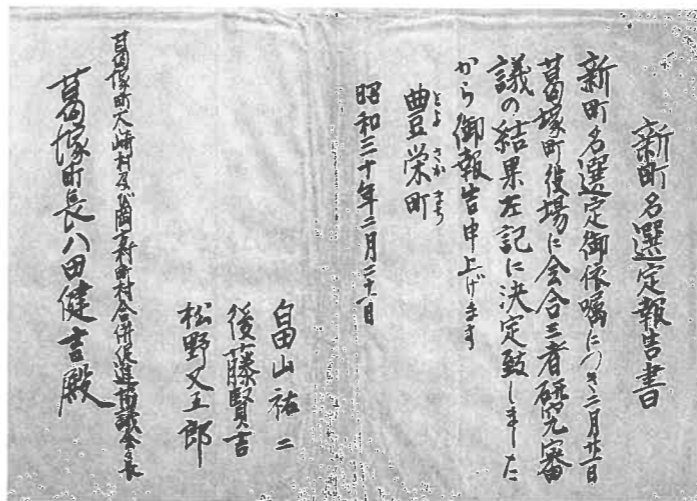 新町名選定報告書
新町名選定御依嘱につき二月廿一日
葛塚町役場に会合三者研究審
議の結果左記に決定致しました
から御報告申上げます
とよさかまち
豊栄町
昭和三十年二月二十一日
畠山祐二
後藤賢吉
松野又五郎
葛塚町木崎村及び岡方村町村合併促進協議会々長
葛塚町長八田健吉殿